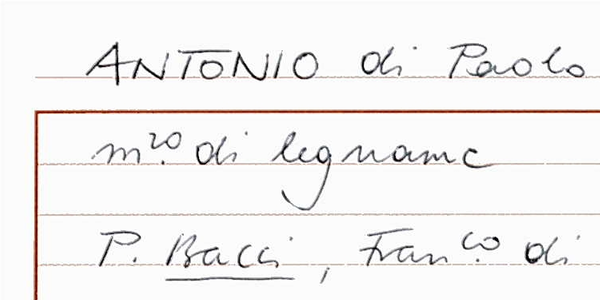 ANTONIO di Paolo
m.ro di legname
P. Bacci, Fran.co di